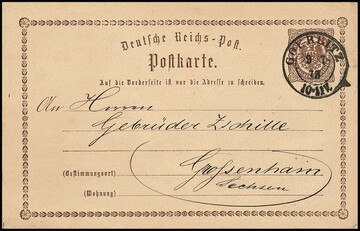 Deutsche Reichs-Post.
Postkarte.
Auf die Vorderseite ist nur die Adresse zu schreiben.
GOERLITZ
10-11V.
An Herren
Gebrüder Zschille
Grossenhain
Sachsen
(Bestimmungsort)
(Wohnung)